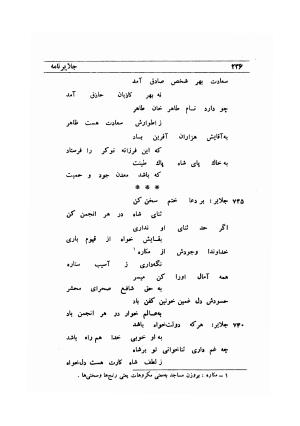 ۲۳۶ جلایرنامه
سعادت بهر شخص صادق آمد
نه بهر کاذبان حاذق آمد
چو دارد نام طاهر خان طاهر
ز اطوارش سعادت هست ظاهر
به‌آقایش هزاران آفرین باد
که این فرزانه نوکر را فرستاد
به خاک پای شاه پاک طینت
که باشد معدن جود و حمیت
* * *
۷۳۵ جلایر: بر دعا ختم سخن کن
ثنای شاه در هر انجمن کن
اگر حد ثنای او نداری
بقایش خواه از قیوم باری
خداوندا وجودش از مکاره۱
نگه‌داری ز آسیب ستاره
همه آمال اورا کن میسر
به حق شافع صحرای محشر
حسودش دل غمین خونین کفن باد
به‌عالم خوار در هر انجمن باد
۷۴۰ جلایر: هرکه دولت‌خواه باشد
به او خوبی خدا هم‌راه باشد
چه غم داری ثناخوانی تو برشاه
ز لطف شاه کارت هست دل‌خواه
۱ - مکاره : بروزن مساجد به‌معنی مکروهات یعنی رنج‌ها وسختی‌ها .